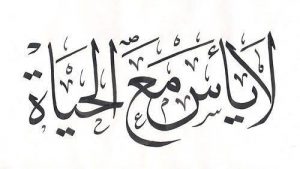 لا يأس مع الحياة